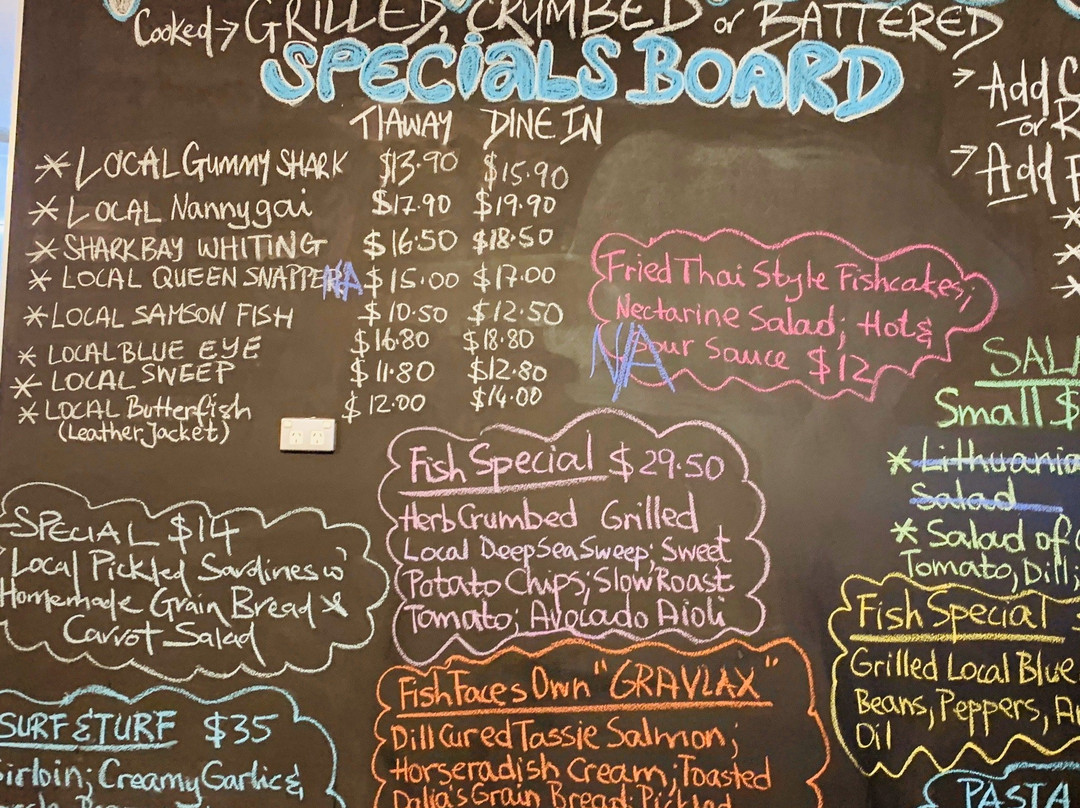 Cooked → GRILLED, CRUMBED or BATTERED
SPECIALS BOARD
T/AWAY DINE IN
* LOCAL Gummy SHARK $13.90 $15.90
* LOCAL Nannygai $17.90 $19.90
* SHARKBAY WHITING $16.50 $18.50
* LOCAL QUEEN SNAPPER N/A $15.00 $17.00
* LOCAL SAMSON FISH $10.50 $12.50
* LOCAL BLUE EYE $16.80 $18.80
* LOCAL SWEEP $11.80 $12.80
* LOCAL Butterfish $12.00 $14.00
(Leather Jacket)
Fried Thai Style Fishcakes;
Nectarine Salad; Hot &
Sour Sauce $12
N/A
→ Add
or
→ Add
SPECIAL $14
Local Pickled Sardines w
Homemade Grain Bread &
Carrot Salad
Fish Special $29.50
Herb Crumbed Grilled
Local Deep Sea Sweep; Sweet
Potato Chips; Slow Roast
Tomato; Avocado Aioli
Small $
* Lithuania
Salad
* Salad of
Tomato, Dill;
Fish Special
Grilled Local Blue
Beans, Peppers,
Oil
SURF & TURF $35
Sirloin; Creamy Garlic &
Fish Faces Own "GRAVLAX"
Dill Cured Tassie Salmon;
Horseradish Cream; Toasted
Dalia's Grain Bread; Pickled
PASTA